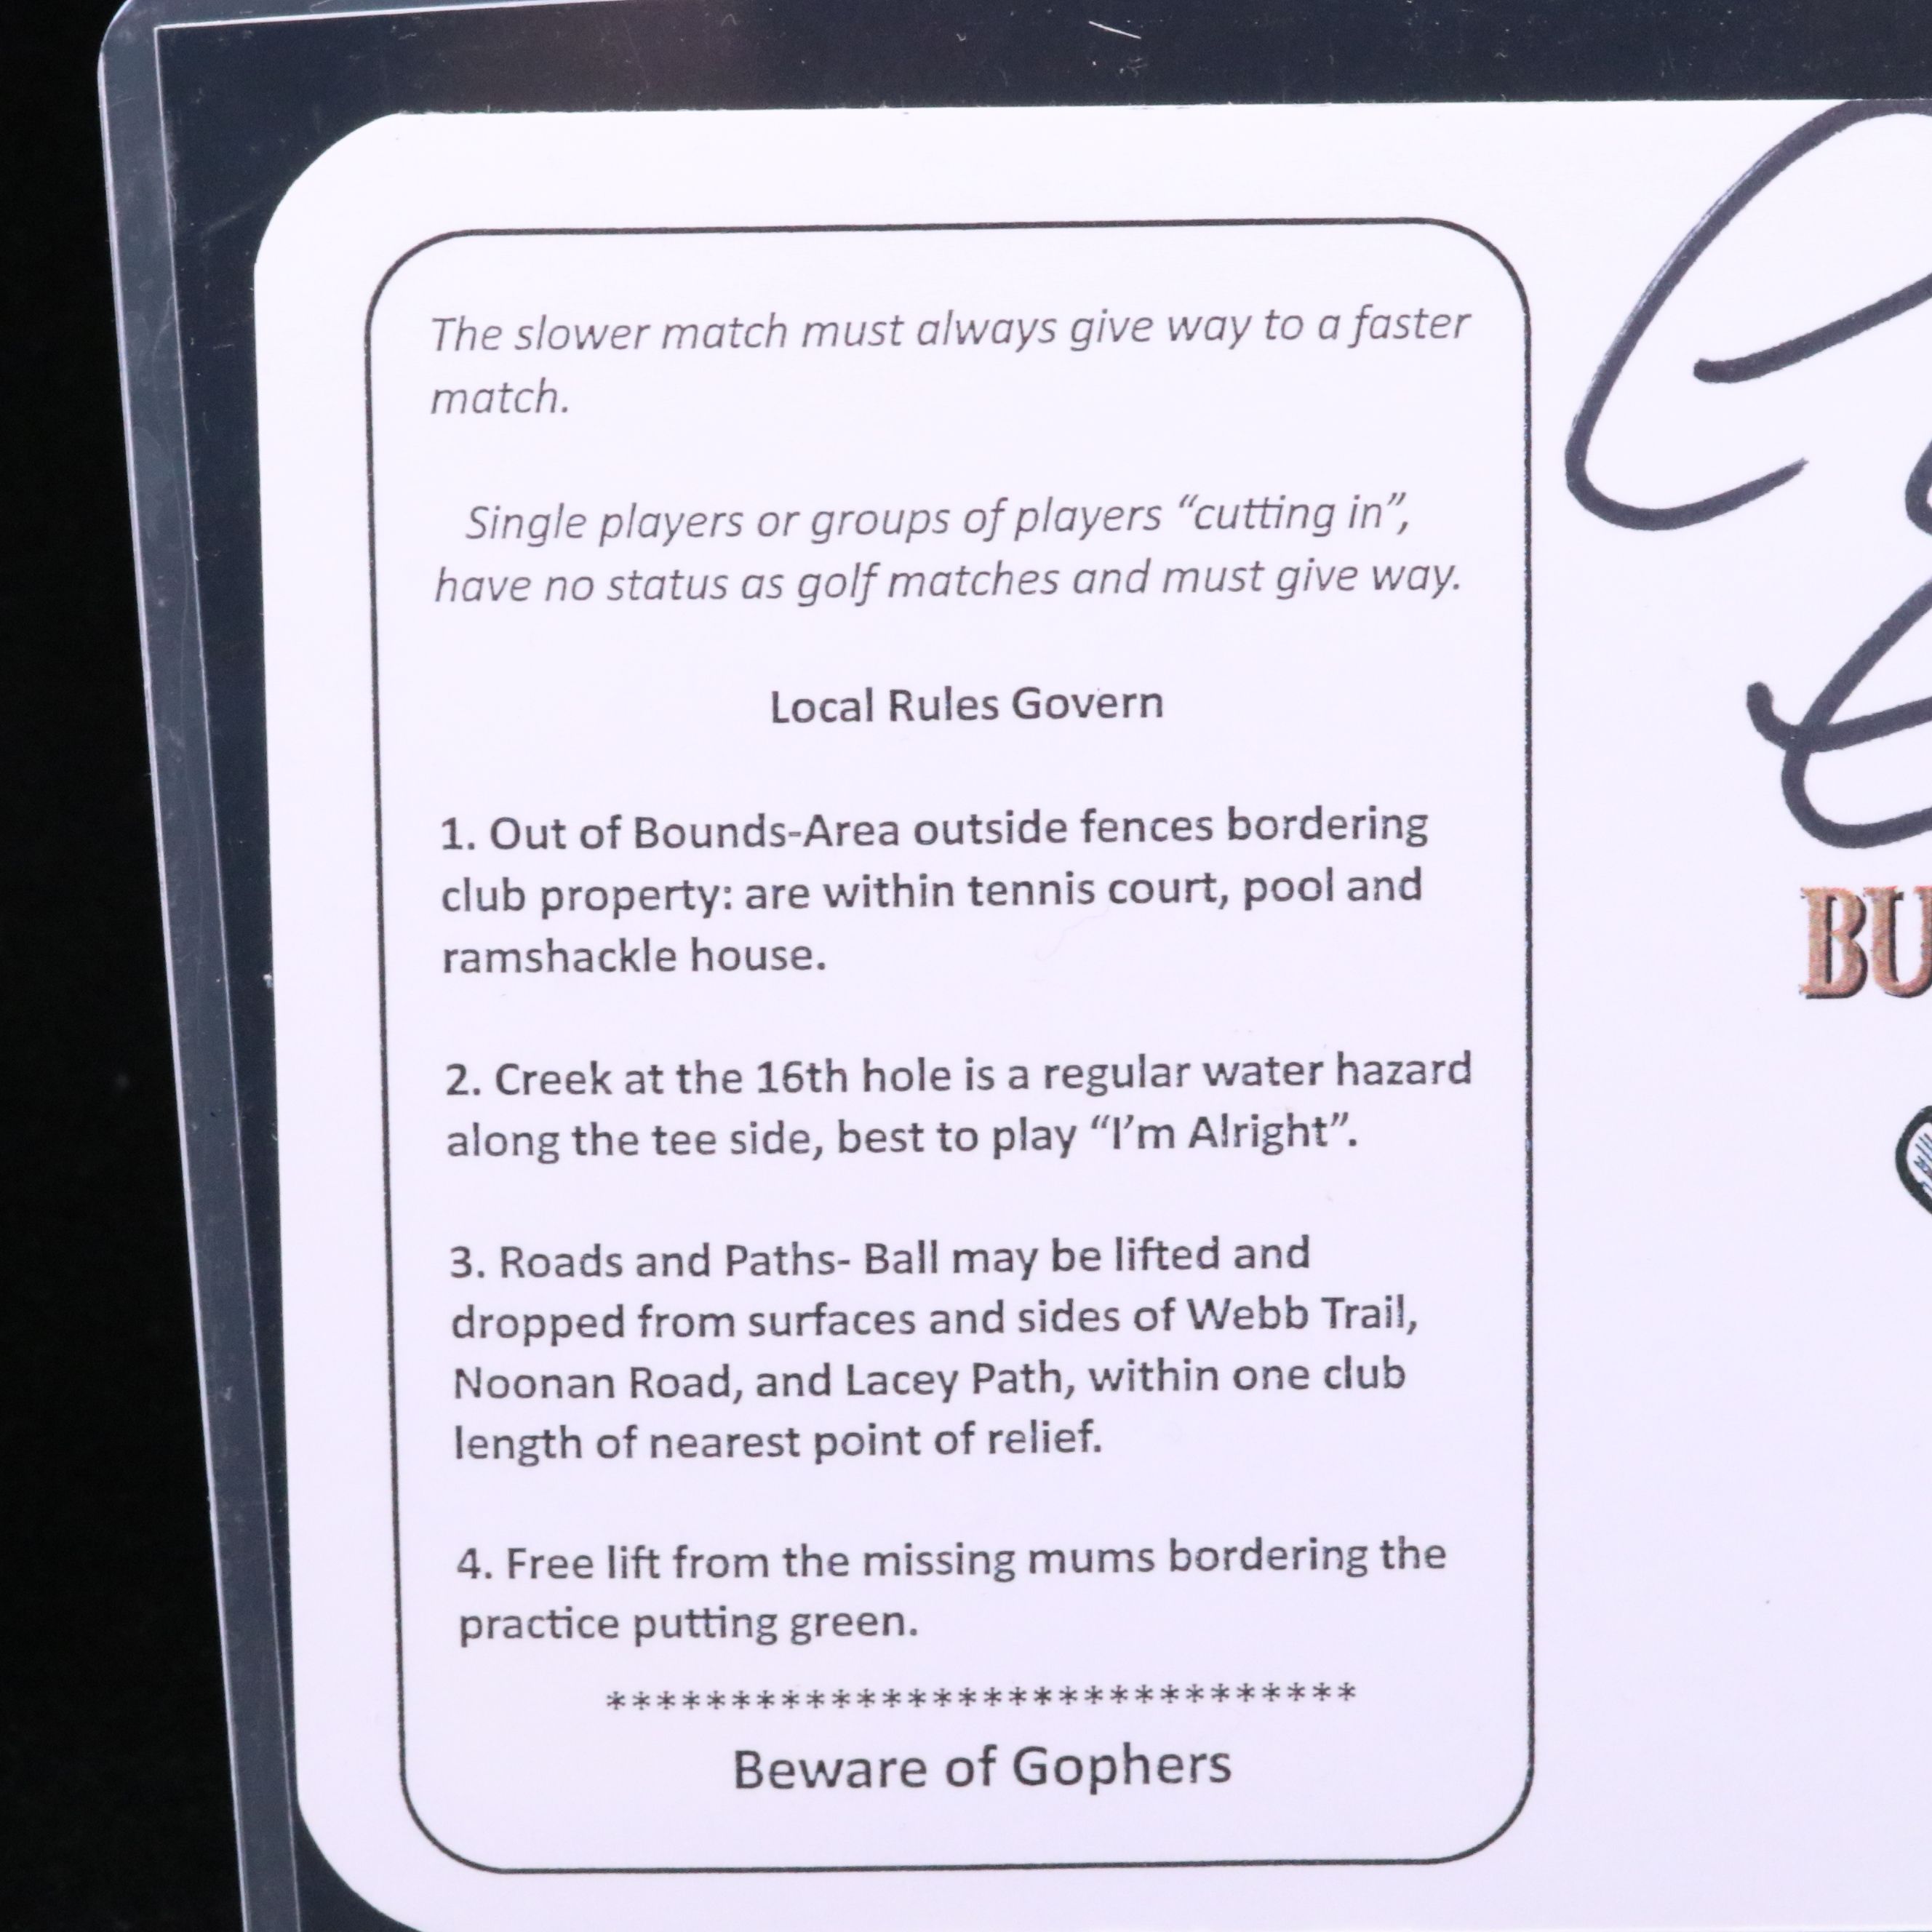 The slower match must always give way to a faster
match.
Single players or groups of players “cutting in”,
have no status as golf matches and must give way.
Local Rules Govern
1. Out of Bounds-Area outside fences bordering
club property: are within tennis court, pool and
ramshackle house.
2. Creek at the 16th hole is a regular water hazard
along the tee side, best to play “I’m Alright”.
3. Roads and Paths- Ball may be lifted and
dropped from surfaces and sides of Webb Trail,
Noonan Road, and Lacey Path, within one club
length of nearest point of relief.
4. Free lift from the missing mums bordering the
practice putting green.
******************************
Beware of Gophers
BU